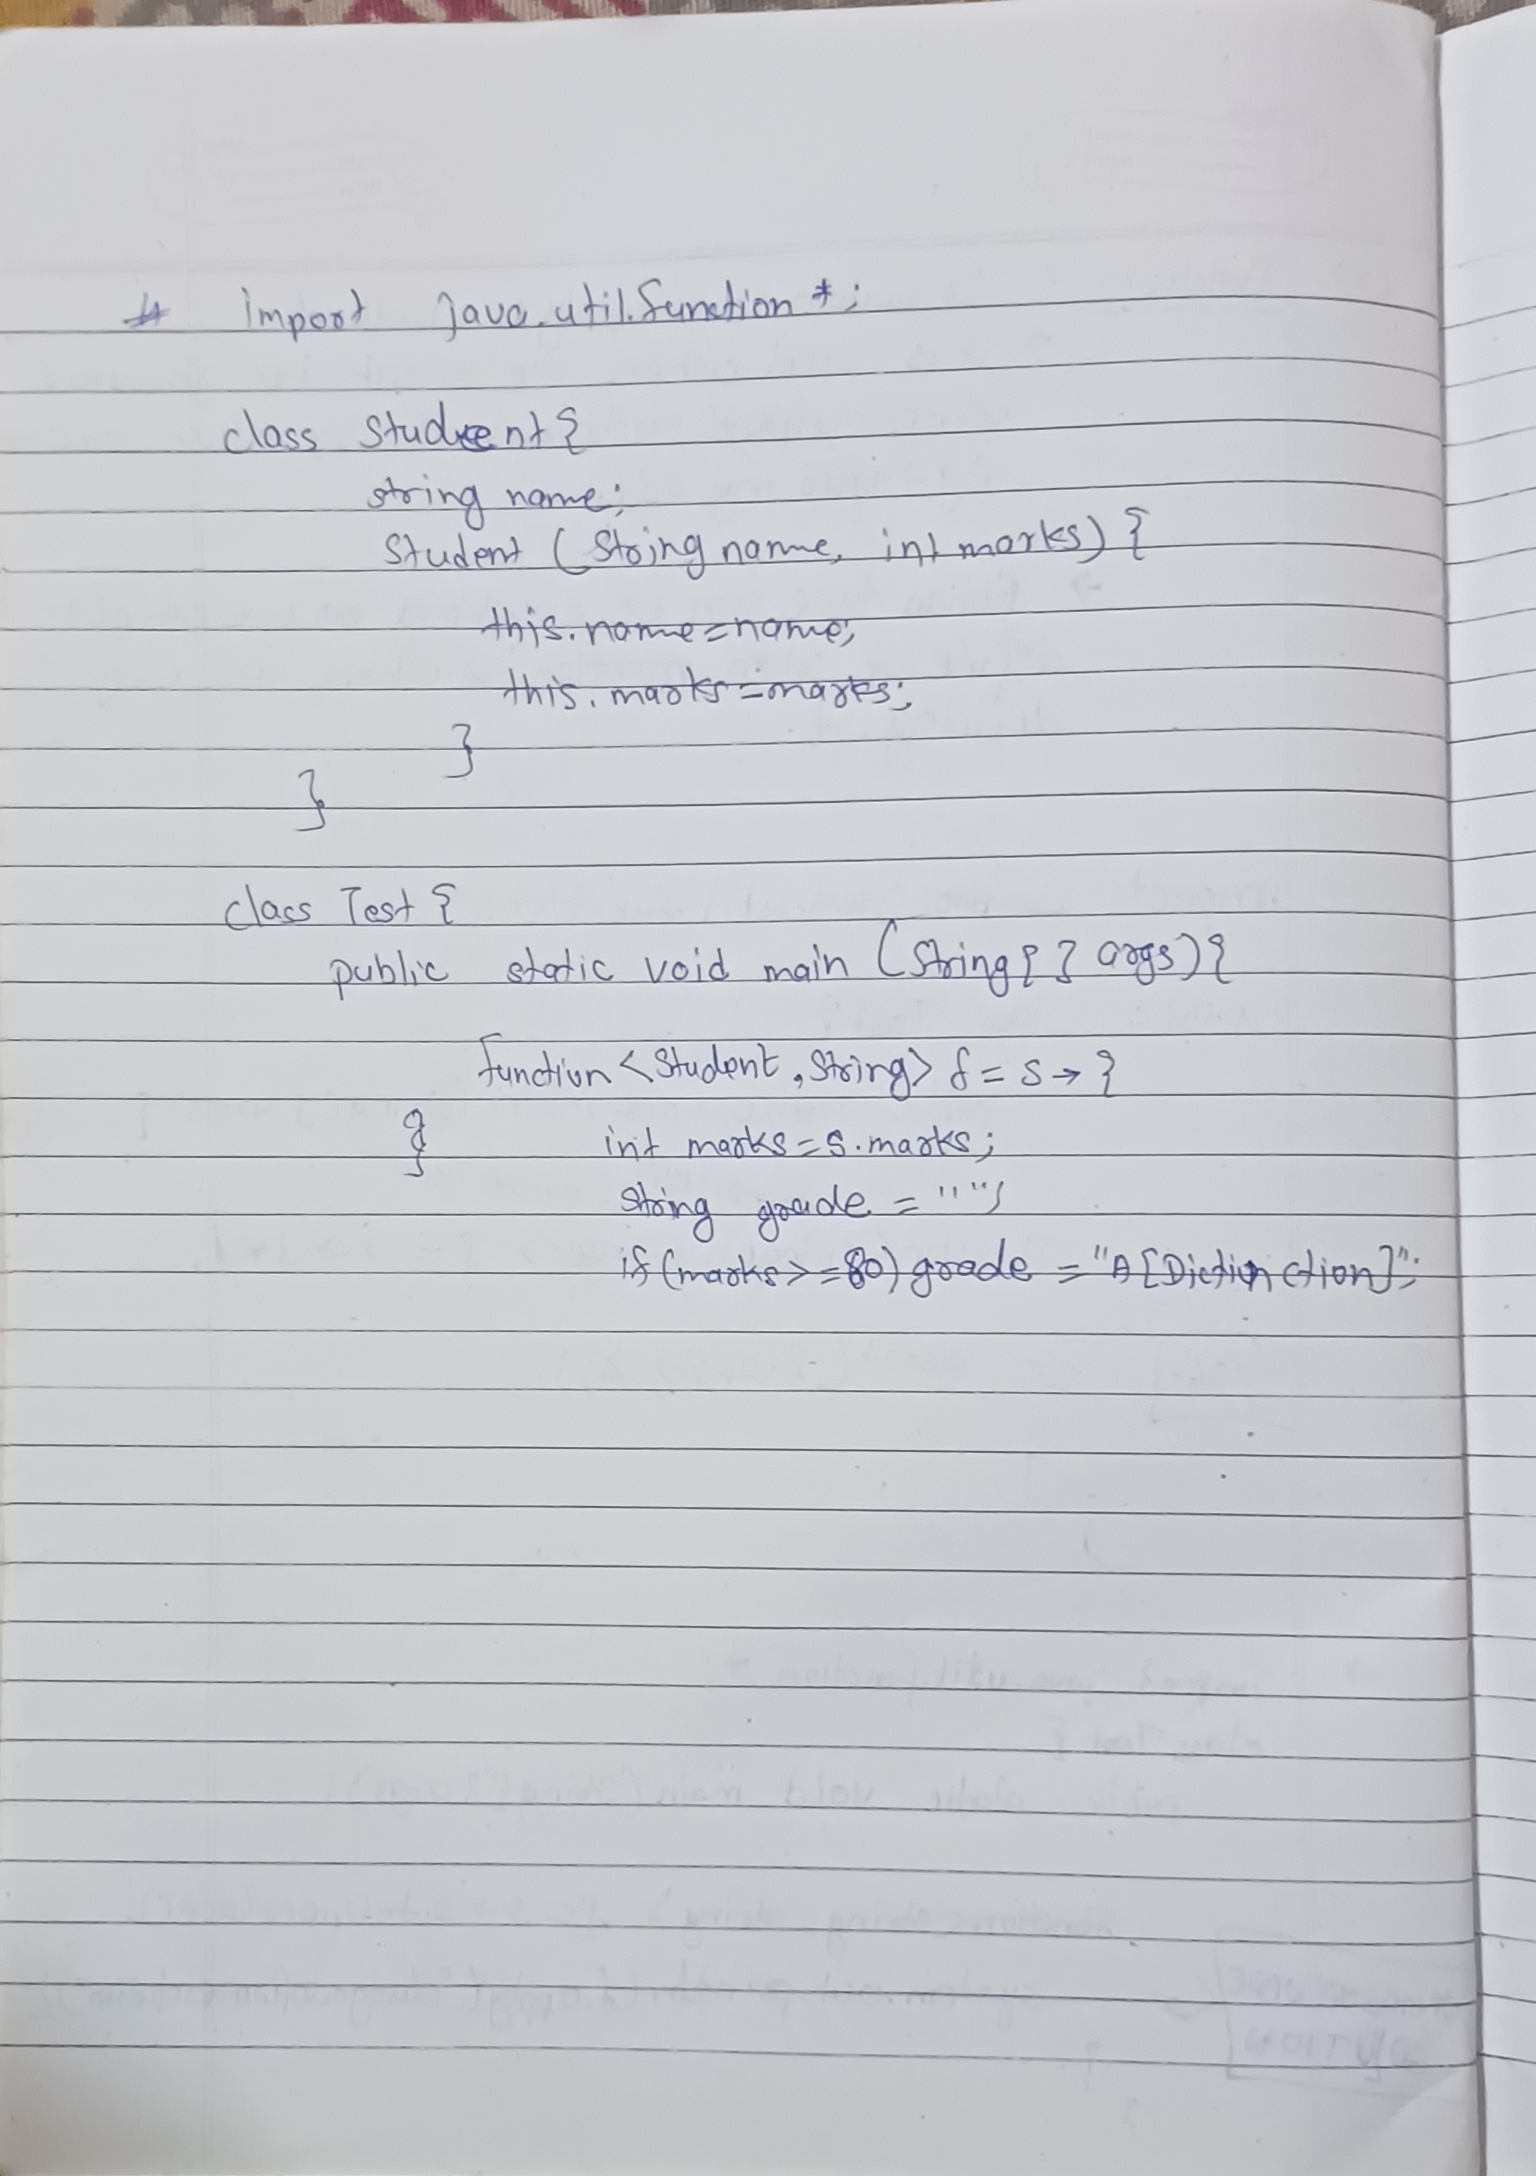 # import java.util.function *;
class Student {
string name;
Student (String name, int marks) {
this.name=name;
this.marks=marks;
}
}
class Test {
public static void main (String { } args) {
function <Student, String> f = s → {
} int marks = s.marks;
String grade = "";
if (marks >= 80) grade = "A [Dictinction]";